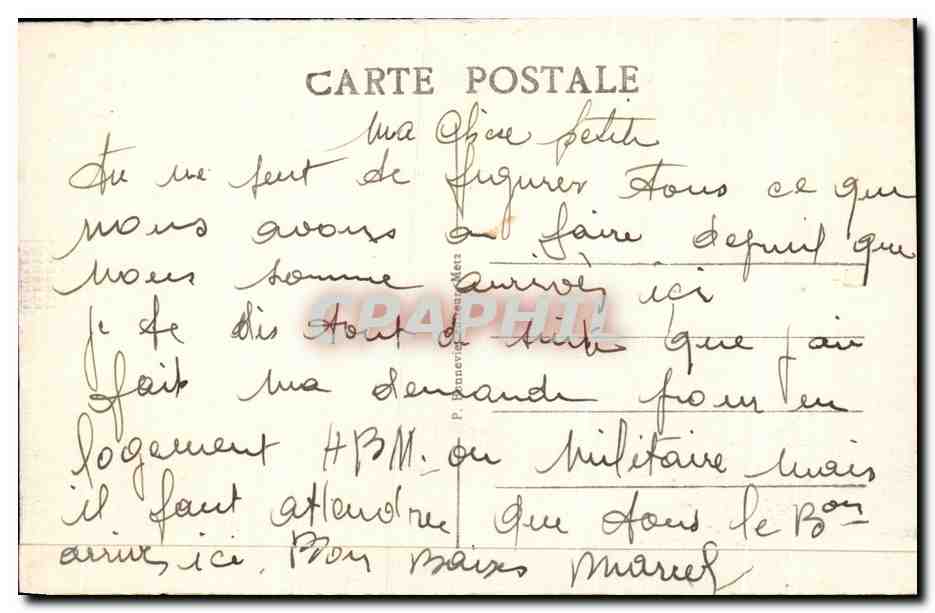 CARTE POSTALE
Ma petite
Tu ne peut te figurer tous ce que
nous avons a faire depuit que
nous somme arrivés ici
je te dis tout de suite que j'ai
fait ma demande pour un
logement HBM. ou Militaire mais
il faut attendre que tous le Bon
arrive ici. Bon Baises Marcel
P. Bonnevie, Metz
CPAPHIL